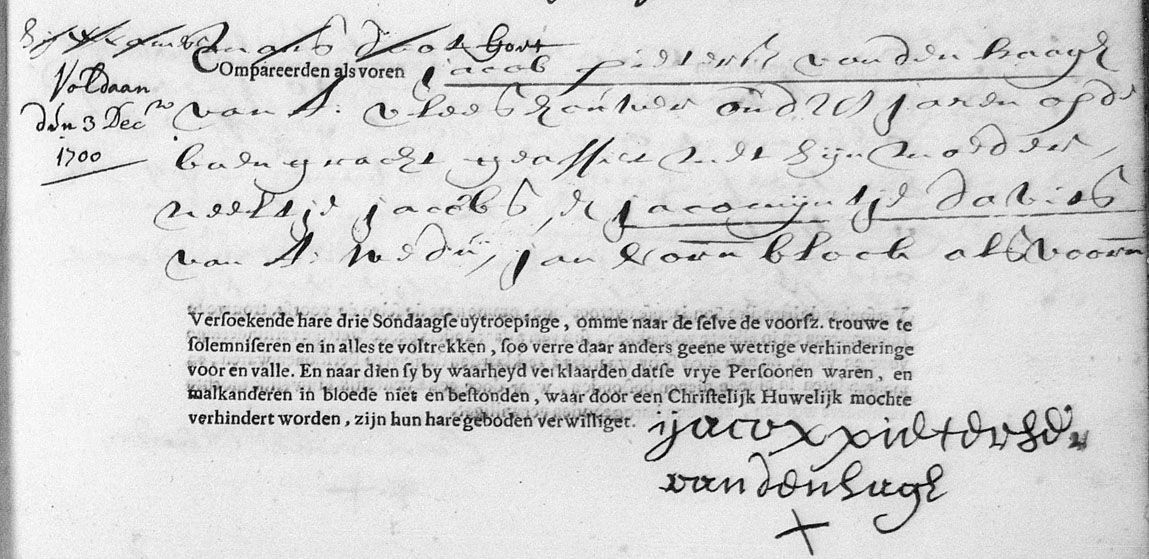 Compareerden als voren jacob pieterse van den haagh
Voldaan
den 3 Decbr
1700
van A. vleeshouwer oud 25 jaren op de
baengracht geassist met sijn moeder,
neeltje jacobs, & jacomijntje davids
van A. wedu, jan Coornblock als voorn
Versoekende hare drie Sondaagse uytroepinge, omme naar de selve de voorsz. trouwe te
solemniseren en in alles te voltrekken, soo verre daar anders geene wettige verhinderinge
voor en valle. En naar dien sy by waarheyd verklaarden datse vrye Persoonen waren, en
malkanderen in bloede niet en bestonden, waar door een Christelijk Huwelijk mochte
verhindert worden, zijn hun hare geboden verwilliget.
ijacop pietersen
van den hagh